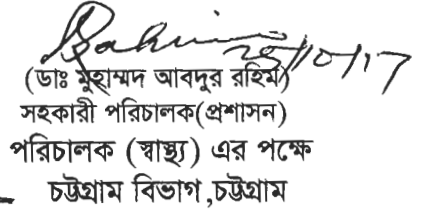 25/10/17
(ডাঃ মুহাম্মদ আবদুর রহিম)
সহকারী পরিচালক(প্রশাসন)
পরিচালক (স্বাস্থ্য) এর পক্ষে
চট্টগ্রাম বিভাগ,চট্টগ্রাম